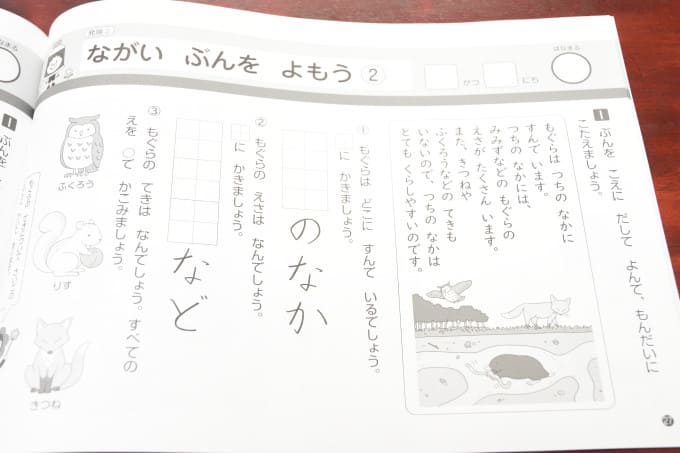 ながい ぶんを よもう ②
がつ
にち
はなまる
1 ぶんを こえに だして よんで、もんだいに
こたえましょう。
もぐらは つちの なかに
すんで います。
つちの なかには、
みみずなどの もぐらの
えさが たくさん います。
また、きつねや
ふくろうなどの てきも
いないので、つちの なかは
とても くらしやすいのです。
① もぐらは どこに すんで いるでしょう。
に かきましょう。
のなか
② もぐらの えさは なんでしょう。
に かきましょう。
など
③ もぐらの てきは なんでしょう。すべての
えを ○で かこみましょう。
ふくろう
りす
きつね
27